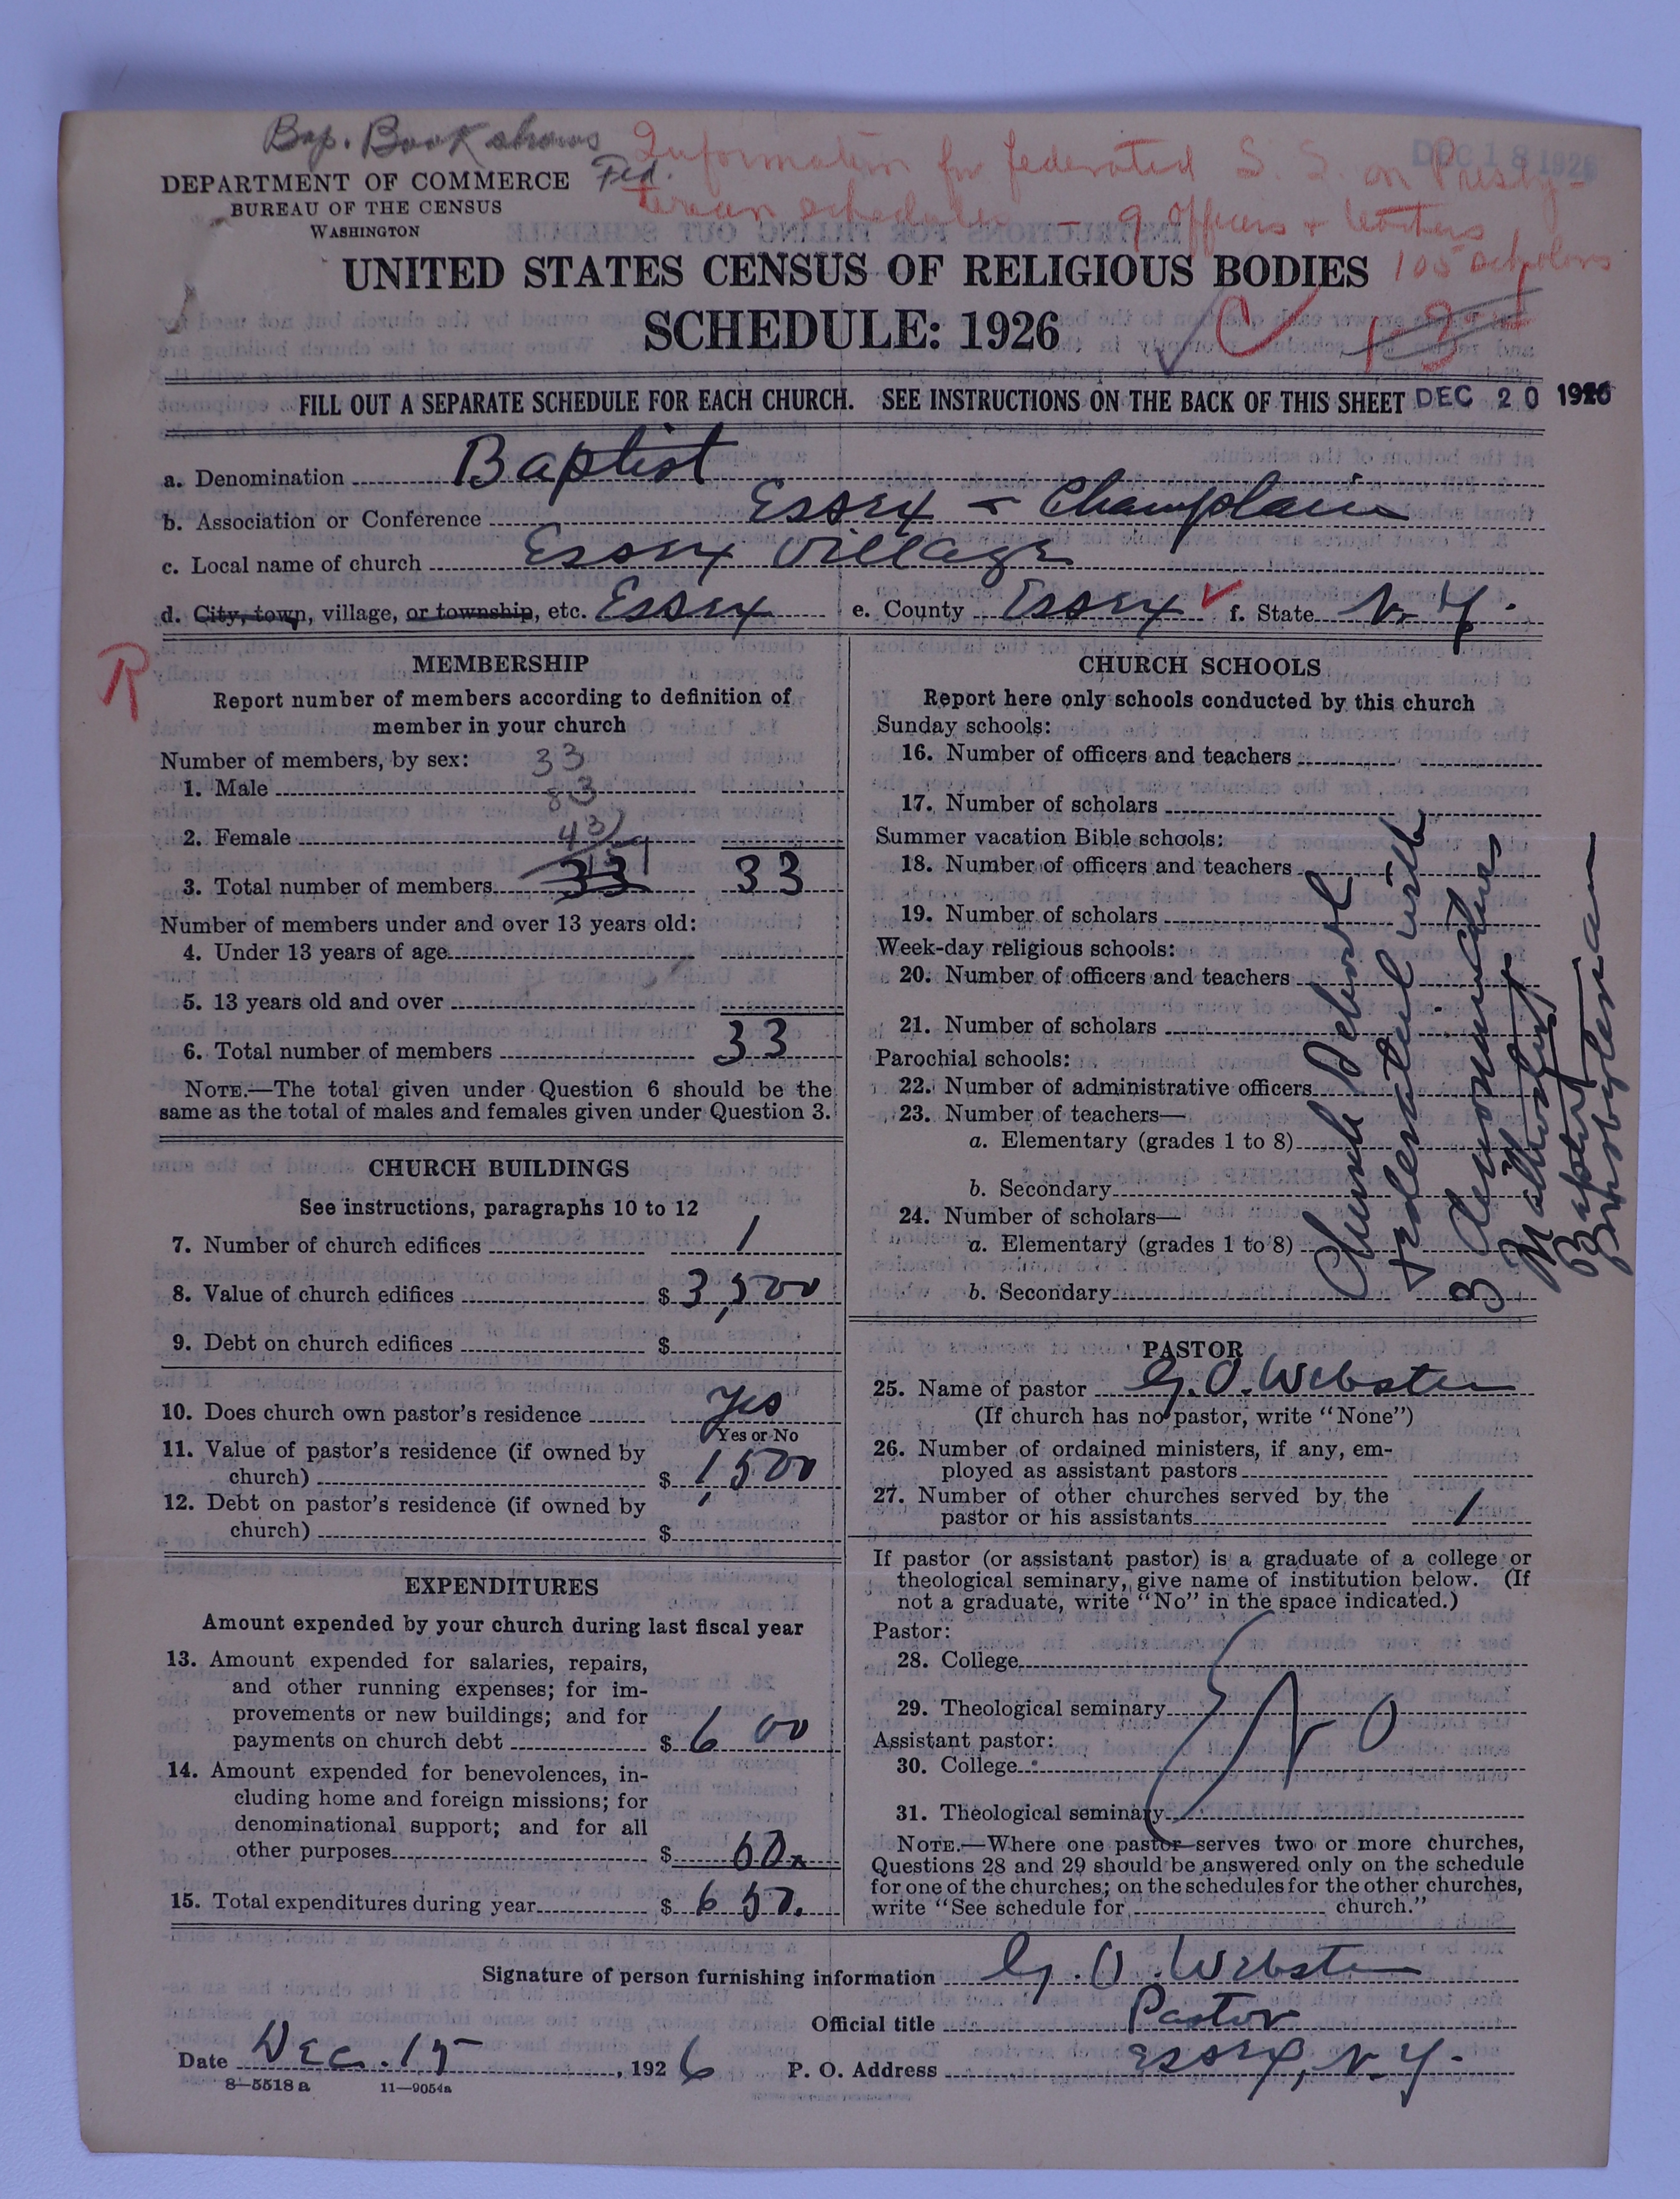 Bap. Book shows
Fed.
Information for federated S. S. on Presby-
terian schedule - 9 officers + teachers
105 scholars
DEC 18 1926
DEPARTMENT OF COMMERCE
BUREAU OF THE CENSUS
WASHINGTON
UNITED STATES CENSUS OF RELIGIOUS BODIES
SCHEDULE: 1926
C
FILL OUT A SEPARATE SCHEDULE FOR EACH CHURCH. SEE INSTRUCTIONS ON THE BACK OF THIS SHEET DEC 20 1926
a. Denomination Baptist
b. Association or Conference Essex - Champlain
c. Local name of church Essex Village
d. City, town, village, or township, etc. Essex e. County Essex f. State N. Y.
R
MEMBERSHIP
Report number of members according to definition of
member in your church
Number of members, by sex: 33
1. Male 83
2. Female 43
3. Total number of members 33 33
Number of members under and over 13 years old:
4. Under 13 years of age
5. 13 years old and over
6. Total number of members 33
NOTE.—The total given under Question 6 should be the
same as the total of males and females given under Question 3.
CHURCH BUILDINGS
See instructions, paragraphs 10 to 12
7. Number of church edifices 1
8. Value of church edifices $ 3,500
9. Debt on church edifices $
10. Does church own pastor's residence Yes
Yes or No
11. Value of pastor's residence (if owned by
church) $ 1,500
12. Debt on pastor's residence (if owned by
church) $
EXPENDITURES
Amount expended by your church during last fiscal year
13. Amount expended for salaries, repairs,
and other running expenses; for im-
provements or new buildings; and for
payments on church debt $ 6 00
14. Amount expended for benevolences, in-
cluding home and foreign missions; for
denominational support; and for all
other purposes $
15. Total expenditures during year $ 650.
CHURCH SCHOOLS
Report here only schools conducted by this church
Sunday schools:
16. Number of officers and teachers
17. Number of scholars
Summer vacation Bible schools:
18. Number of officers and teachers
19. Number of scholars
Week-day religious schools:
20. Number of officers and teachers
21. Number of scholars
Parochial schools:
22. Number of administrative officers
23. Number of teachers—
a. Elementary (grades 1 to 8)
b. Secondary
24. Number of scholars—
a. Elementary (grades 1 to 8)
b. Secondary
Church School
federated with
3 denominations
Methodist
Baptist
Presbyterian
PASTOR
25. Name of pastor G. O. Webster
(If church has no pastor, write "None")
26. Number of ordained ministers, if any, em-
ployed as assistant pastors
27. Number of other churches served by the
pastor or his assistants 1
If pastor (or assistant pastor) is a graduate of a college or
theological seminary, give name of institution below. (If
not a graduate, write "No" in the space indicated.)
Pastor:
28. College
29. Theological seminary No
Assistant pastor:
30. College
31. Theological seminary
NOTE.—Where one pastor serves two or more churches,
Questions 28 and 29 should be answered only on the schedule
for one of the churches; on the schedules for the other churches,
write "See schedule for church."
Signature of person furnishing information G. O. Webster
Official title Pastor
Date Dec. 15, 1926 P. O. Address Essex, N.Y.
8—5518a 11—9054a